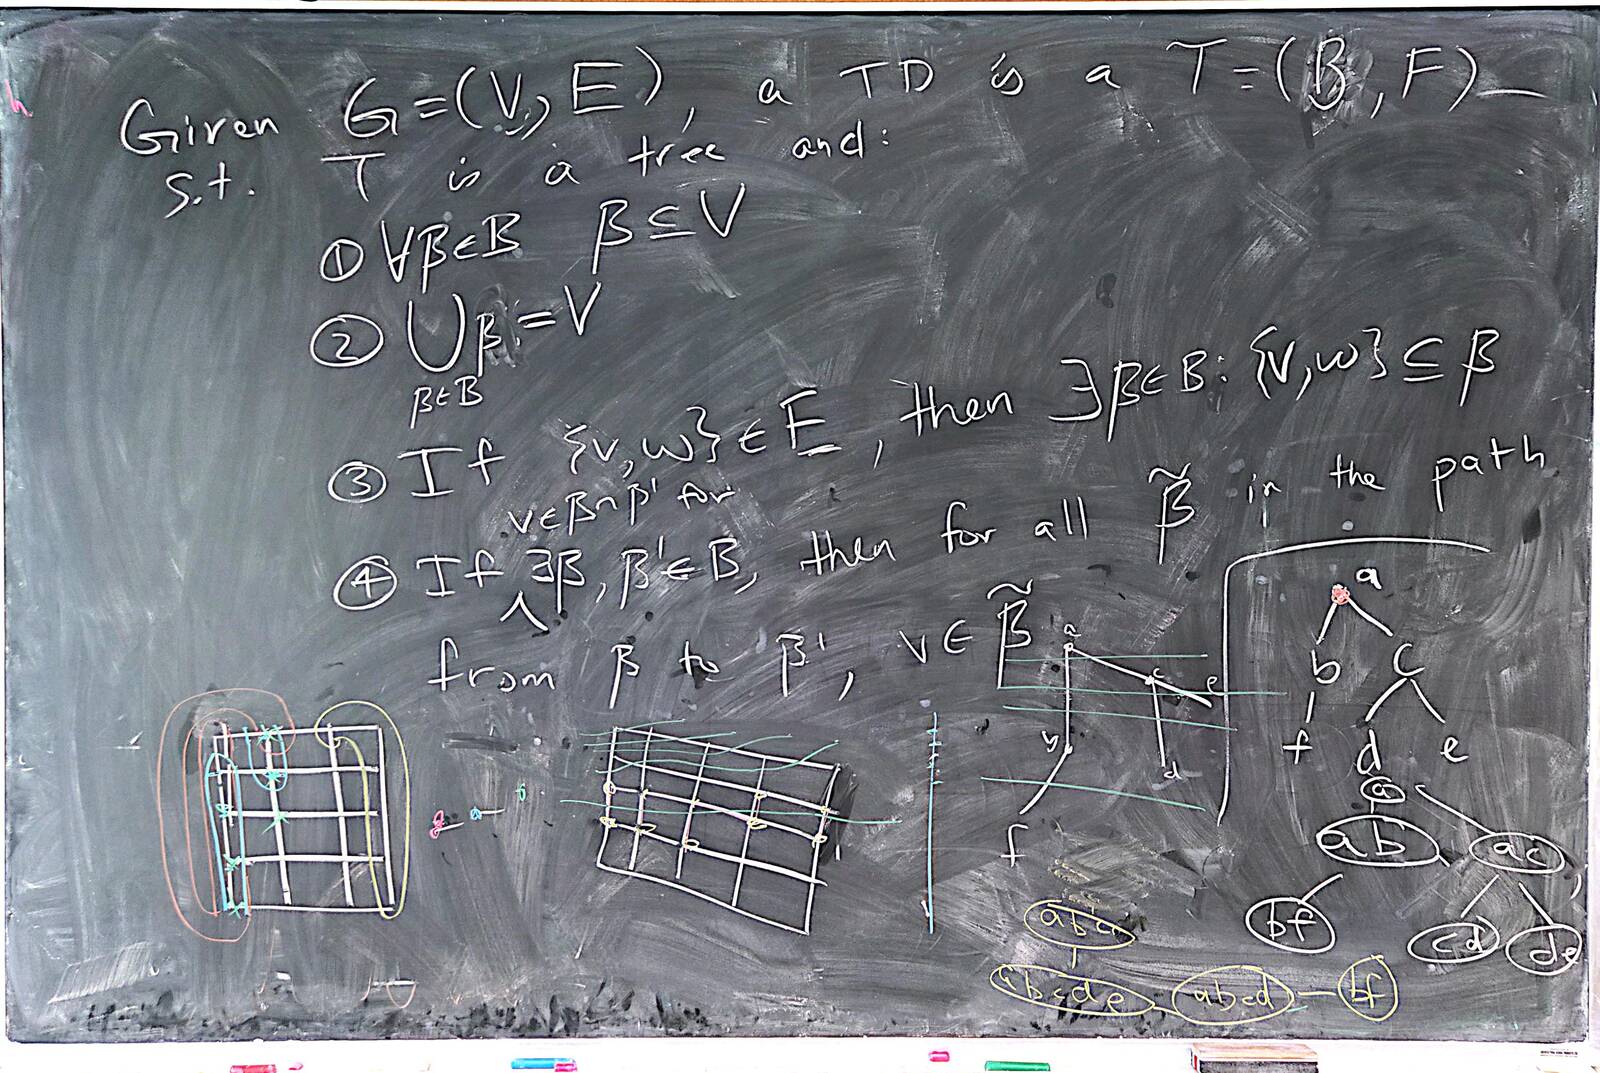 Given G=(V,E), a TD is a T=(B,F)
s.t. T is a tree and:
① ∀β∈B β⊆V
② ⋃β=V
β∈B
③ If {v,w}∈E, then ∃β∈B: {v,w}⊆β
v∈β∩β' for
④ If ∃β,β'∈B, then for all β̃ in the path
from β to β', v∈β̃
a
c
e
b
d
f
a
b c
f d e
a
ab ac
bf cd de
abc
abcde abcd bf